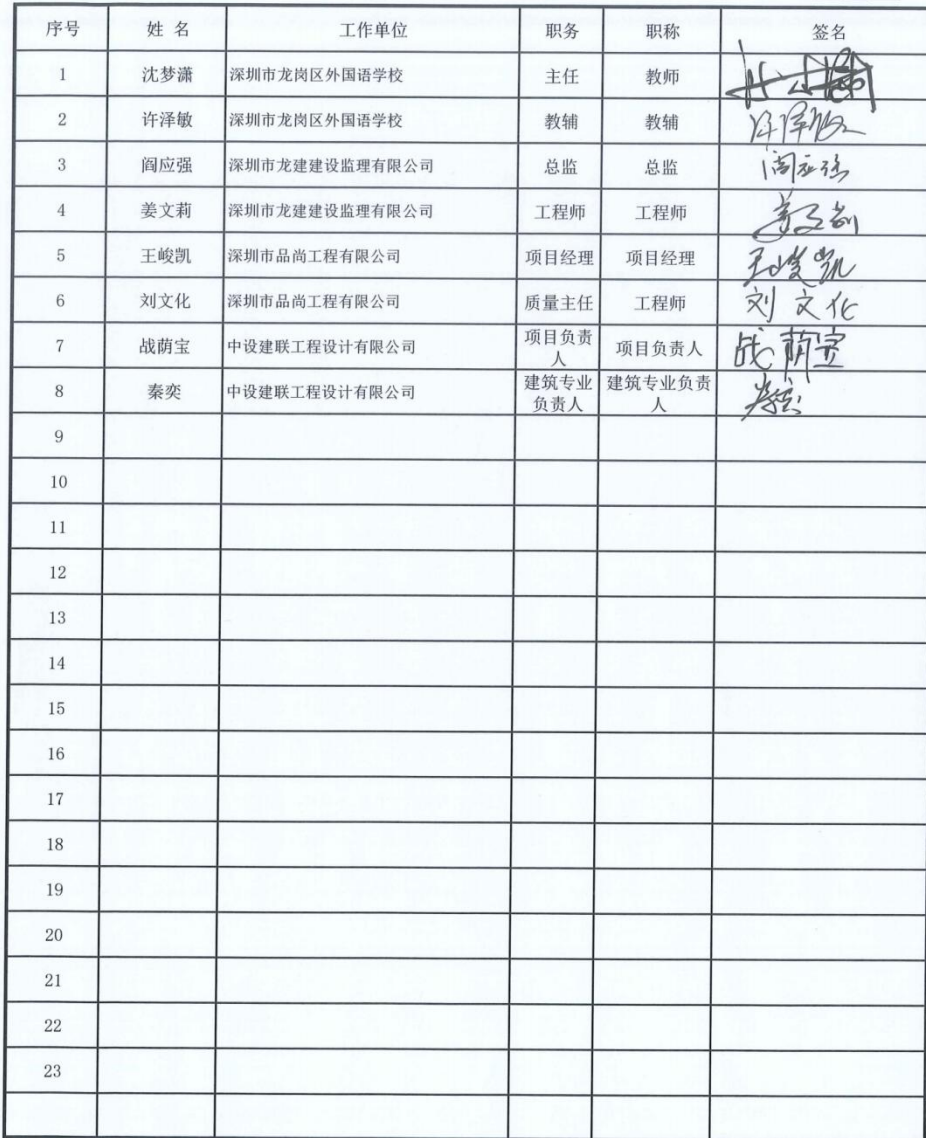 序号 姓 名 工作单位 职务 职称 签名
1 沈梦潇 深圳市龙岗区外国语学校 主任 教师
2 许泽敏 深圳市龙岗区外国语学校 教辅 教辅 许泽敏
3 阎应强 深圳市龙建建设监理有限公司 总监 总监 阎应强
4 姜文莉 深圳市龙建建设监理有限公司 工程师 工程师 姜文莉
5 王峻凯 深圳市品尚工程有限公司 项目经理 项目经理 王峻凯
6 刘文化 深圳市品尚工程有限公司 质量主任 工程师 刘文化
7 战荫宝 中设建联工程设计有限公司 项目负责人 项目负责人 战荫宝
8 秦奕 中设建联工程设计有限公司 建筑专业负责人 建筑专业负责人 秦奕
9
10
11
12
13
14
15
16
17
18
19
20
21
22
23